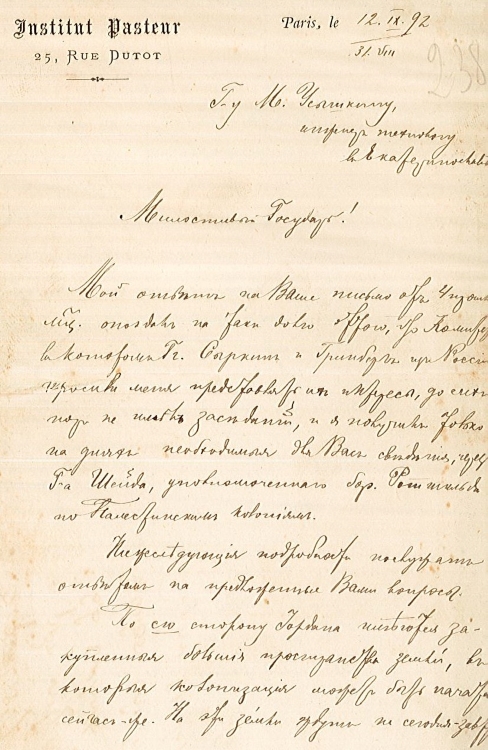 Institut Pasteur
25, Rue Dutot
Paris, le 12.IX.92
31.VIII
238
Г-у М. Усышкину,
въ Екатеринославѣ
Милостивый Государь!
Мой отвѣтъ на Ваше письмо отъ
опоздалъ на
въ которомъ Гг. Сыркинъ и Гринбергъ при
просили меня представлять ихъ интересы, до сихъ
поръ не имѣлъ засѣданій, и я получилъ только
на дняхъ необходимыя для Васъ свѣдѣнія, чрезъ
Г-а Шейда, уполномоченнаго бар. Ротшильда
по Палестинскимъ колоніямъ.
Нижеслѣдующія подробности послужатъ
отвѣтомъ на предложенные Вами вопросы.
По сю сторону Іордана имѣются за-
купленныя большія пространства земли, въ
которыхъ колонизація можетъ быть начата
сейчасъ-же. На эти земли будутъ не сегодня-завтра